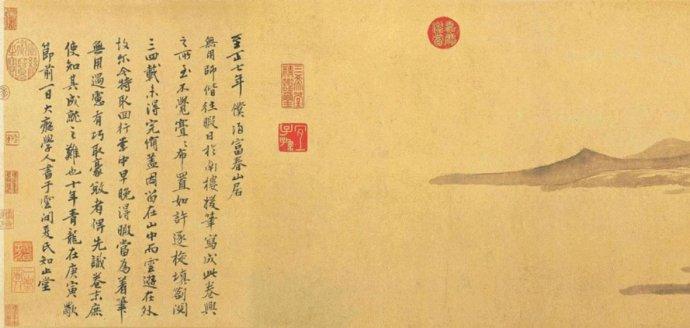 嘉慶鑑賞
三希堂精鑑璽
宜子孫
至正七年僕歸富春山居
無用師偕往暇日於南樓援筆寫成此卷興
之所至不覺亹亹布置如許逐旋填劄閱
三四載未得完備蓋因留在山中而雲遊在外
故尔今特取回行李中早晚得暇當為着筆
無用過慮有巧取豪敚者俾先識卷末庶
使知其成就之難也十年青龍在庚寅歜
節前一日大癡學人書于雲間夏氏知止堂